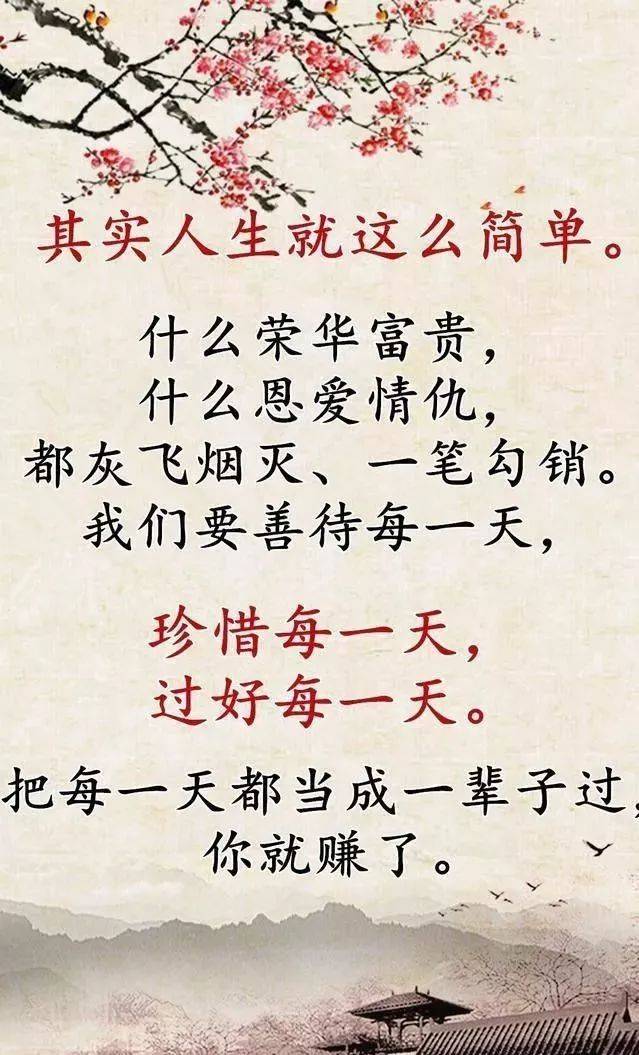 其实人生就这么简单。
什么荣华富贵，
什么恩爱情仇，
都灰飞烟灭、一笔勾销。
我们要善待每一天，
珍惜每一天，
过好每一天。
把每一天都当成一辈子过，
你就赚了。